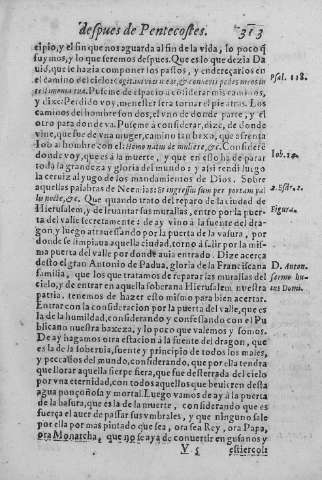 despues de Pentecostes. 313
cipio, y el fin que nos aguarda al fin de la vida, lo poco q̃
fuymos, y lo que seremos despues. Que es lo que dezia Da
uid, que le hazia componer los passos, y endereçarlos en
el camino del cielo: Cogitavi vias meas, & converti pedes meos in
testimonia tua. Puseme de espacio à considerar mis caminos,
y dixe: Perdido voy, menester sera tornar el pie atras. Los
caminos del hombre son dos, el vno de donde parte, y el
otro para donde va. Puseme a considerar, dize, de donde
vine, que fue de vna muger, camino tan baxo, que afrenta
Iob al hombre con el: Homo natus de muliere, &c. Considerè
donde voy, que es a la muerte, y que en esso ha de parar
toda la grandeza y gloria del mundo: y assi rendi luego
la ceruiz al yugo de los mandamientos de Dios. Sobre
aquellas palabras de Neemias: Et ingressus sum per portam val
lis nocte, &c. Que quando trato del reparo de la ciudad de
Hierusalem, y de leuantar sus murallas, entro por la puer-
ta del valle secretamente: de ay vino à la fuente del dra-
gon, y luego atrauessando por la puerta de la vasura, por
donde se limpiaua aquella ciudad, torno à salir por la mis-
ma puerta del valle por donde auia entrado. Dize acerca
desto el gran Antonio de Padua, gloria de la Franciscana
familia, que los que tratamos de reparar las murallas del
cielo, y de entrar en aquella soberana Hierusalem nuestra
patria, tenemos de hazer esto mismo para bien acertar.
Entrar con la consideracion por la puerta del valle, que es
la de la humildad, considerando y confessando con el Pu
blicano nuestra baxeza, y lo poco que valemos y somos.
De ay hagamos otra estacion à la fuente del dragon, que
es la de la soberuia, fuente y principio de todos los males,
y peccados del mundo, considerando, que por ella tendra
que llorar aquella sierpe fiera, que fue desterrada del cielo
por vna eternidad, con todos aquellos que beuieren desta
agua ponçoñosa y mortal. Luego vamos de ay à la puerta
de la basura, que es la de la muerte, considerando que es
fuerça el auer de passar sus vmbrales, y que ninguno sale
por ella por mas pintado que sea, ora sea Rey, ora Papa,
ora Monarcha, que no se aya de convertir en gusanos y
V 5 estiercol:
Psal. 118.
Iob. 14.
2. Esdr. 2.
Figura.
D. Anton.
sermo hu-
ius Domi.